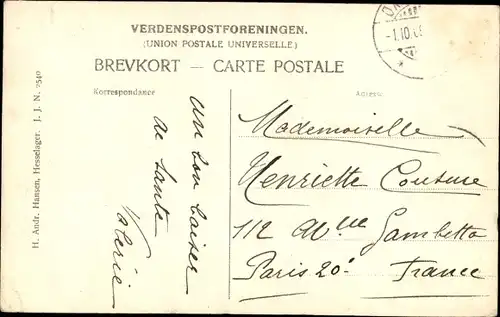 VERDENSPOSTFORENINGEN.
(UNION POSTALE UNIVERSELLE)
BREVKORT — CARTE POSTALE
Korrespondance
Adresse
un bon baiser
de Tante
Valérie
Mademoiselle
Henriette Couture
112 Avue Gambetta
Paris 20e France
H. Andr. Hansen, Hesselager. J. J. N. 2540
-1.10.